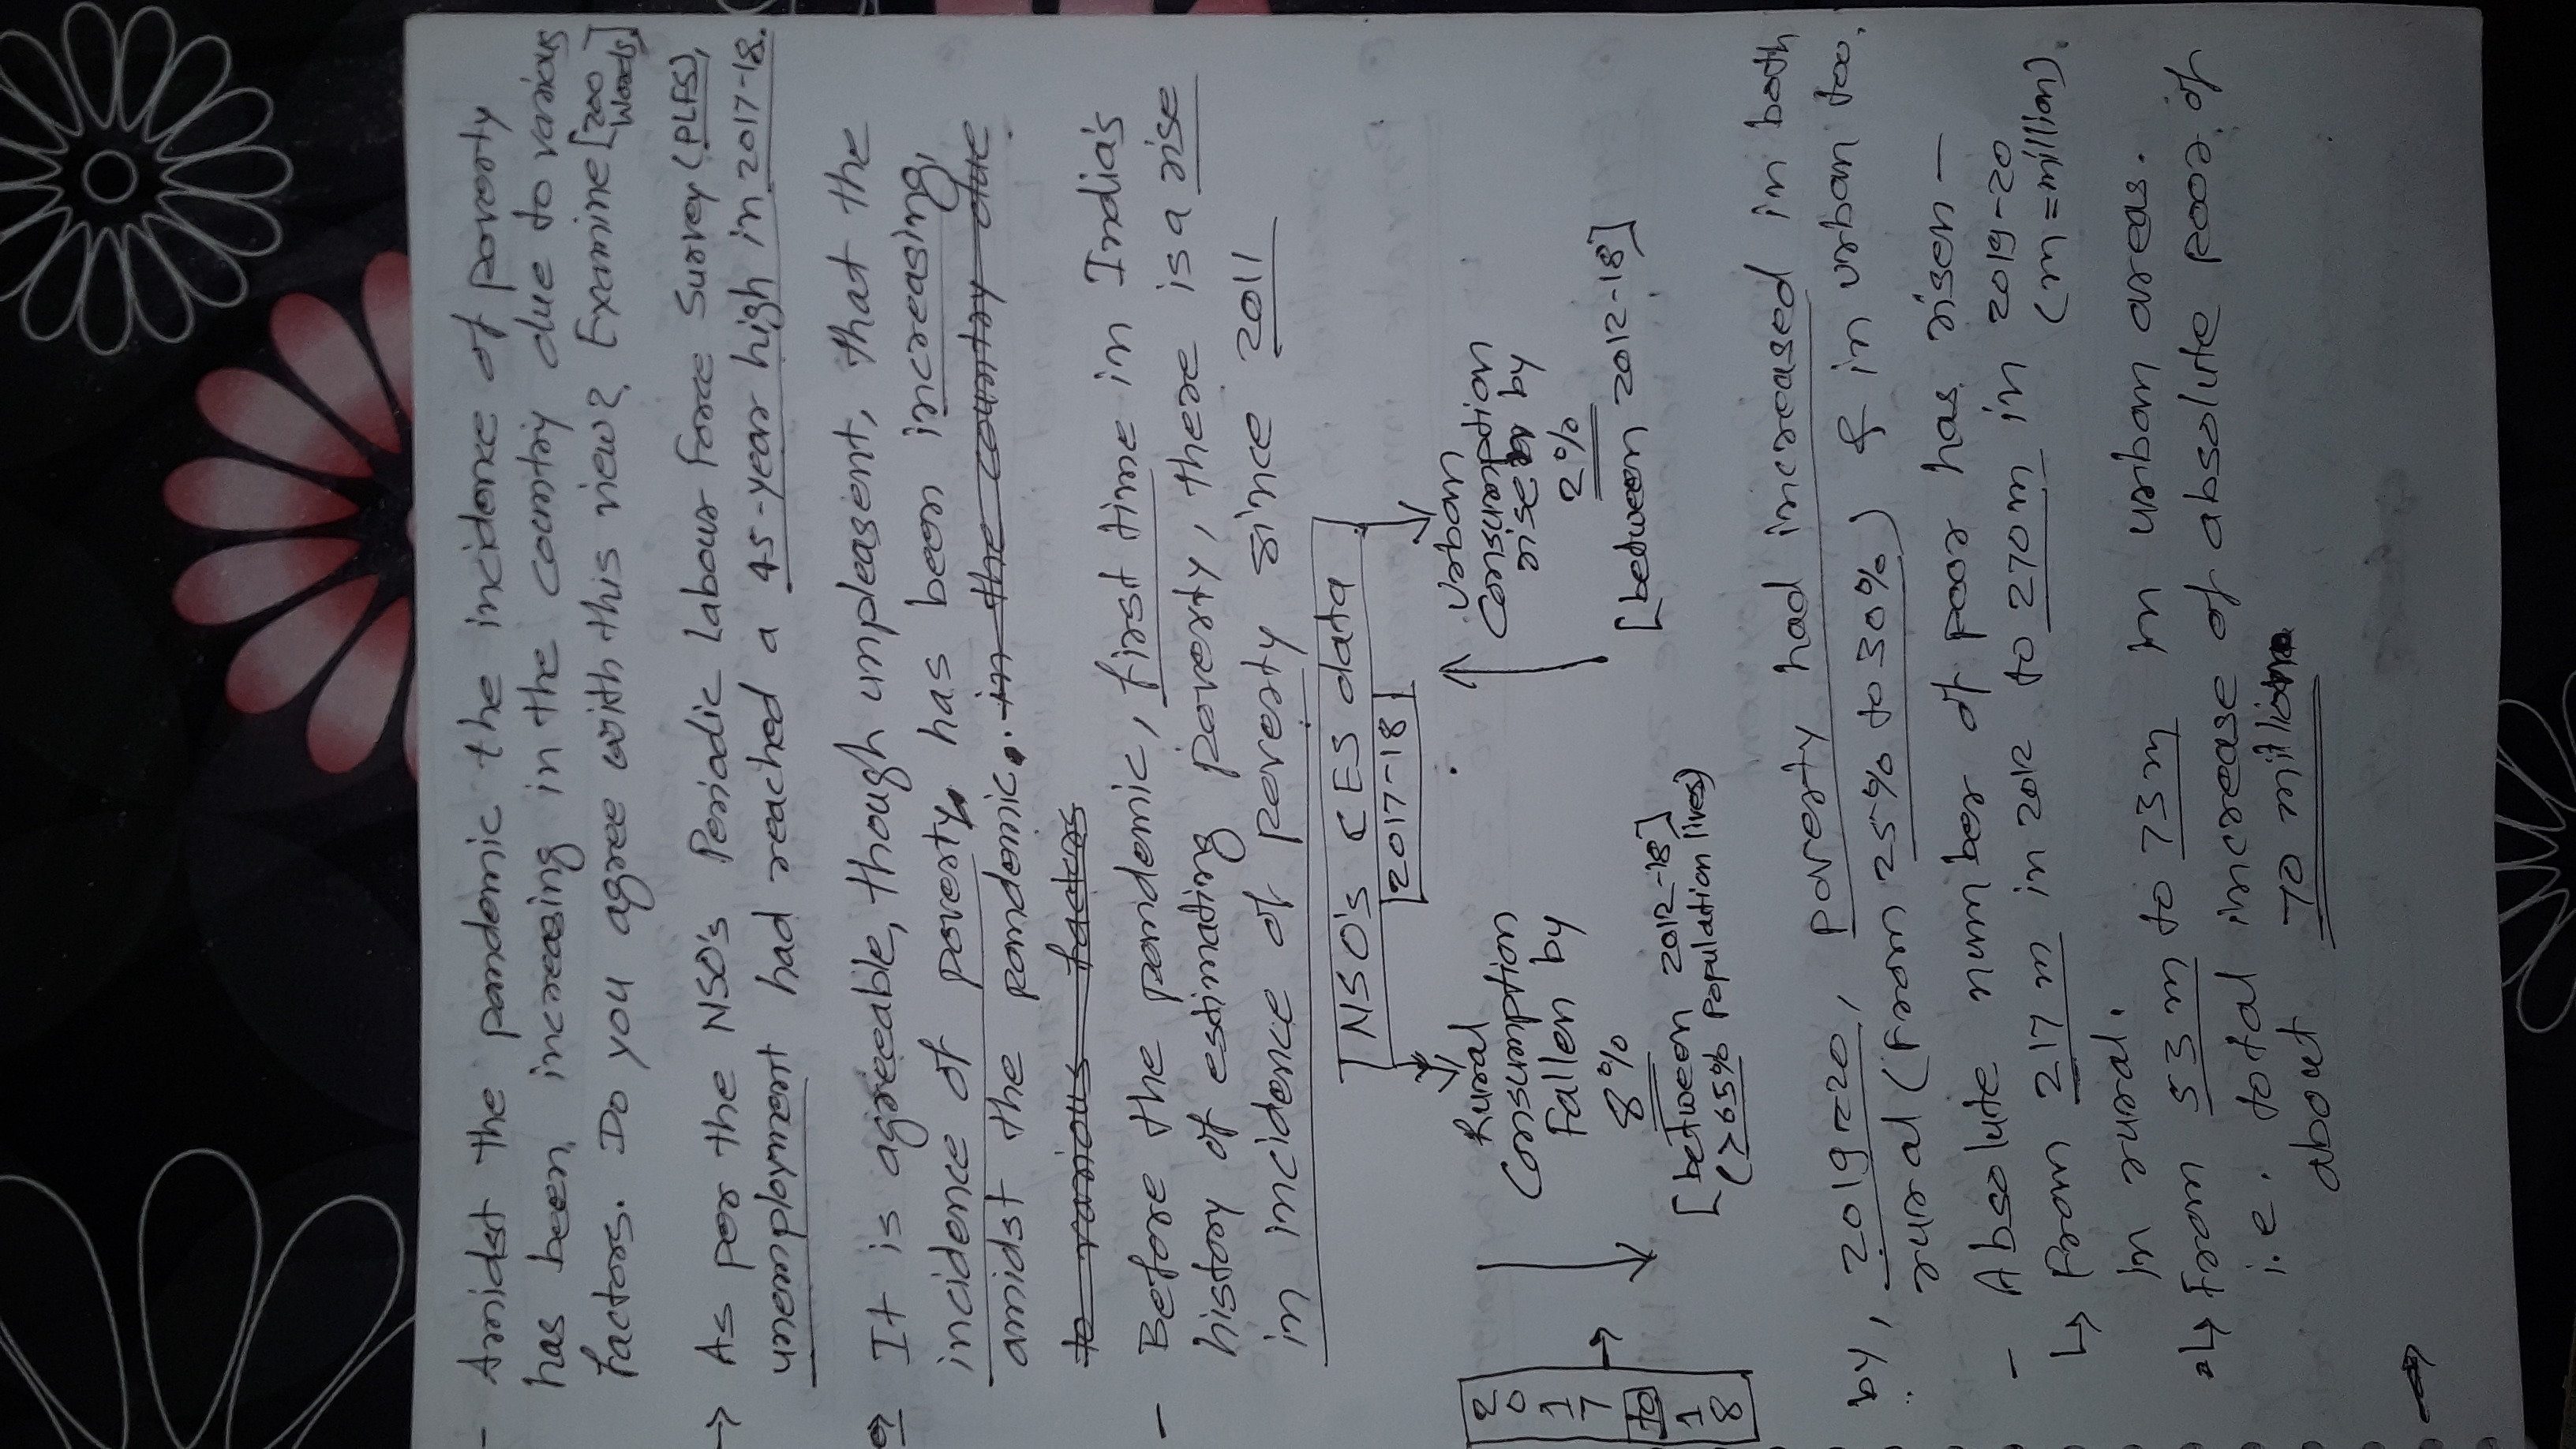 - Amidst the pandemic the incidence of poverty
has been increasing in the country due to various
factors. Do you agree with this view? Examine [200 Words]
→ As per the NSO's Periodic Labour Force Survey (PLFS),
unemployment had reached a 45-year high in 2017-18.
⇒ It is agreeable, though unpleasent, that the
incidence of poverty has been increasing,
amidst the pandemic. in the country due
to various factors
- Before the pandemic, first time in India's
history of estimating poverty, there is a rise
in incidence of poverty since 2011
NSO's CES data
2017-18
2017 to 18
Rural
Consumption
Fallen by
8%
[between 2012-18]
(≥65% population lives)
Urban
Consumption
rise by
2%
[between 2012-18]
by, 2019-20, poverty had increased in both
rural (from 25% to 30%) & in urban too.
- Absolute number of poor has risen -
↳ From 217 m in 2012 to 270 m in 2019-20
in rural. (m = million).
↳ From 53 m to 73 m in urban areas.
i.e. total increase of absolute poor of
about 70 million